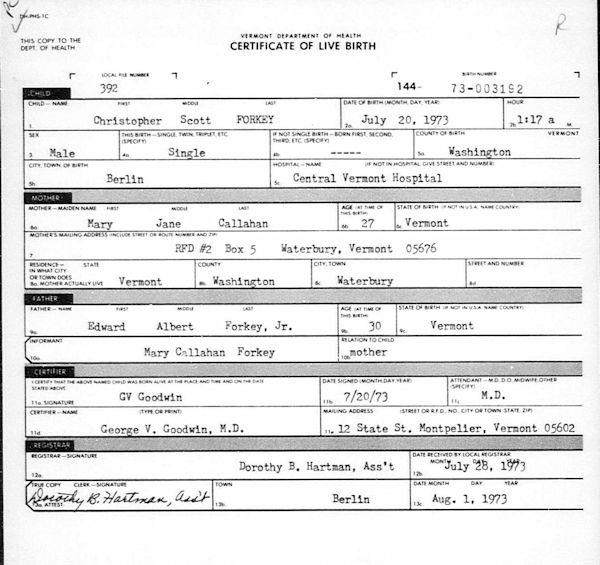 R
DH-PHS-1C
THIS COPY TO THE
DEPT. OF HEALTH
VERMONT DEPARTMENT OF HEALTH
CERTIFICATE OF LIVE BIRTH
R
LOCAL FILE NUMBER
392
BIRTH NUMBER
144- 73-003192
CHILD
CHILD — NAME FIRST MIDDLE LAST
1. Christopher Scott FORKEY
DATE OF BIRTH (MONTH, DAY, YEAR)
2a. July 20, 1973
HOUR
2b. 1:17 a M.
SEX
3. Male
THIS BIRTH — SINGLE, TWIN, TRIPLET, ETC.
(SPECIFY)
4a. Single
IF NOT SINGLE BIRTH — BORN FIRST, SECOND,
THIRD, ETC. (SPECIFY)
4b. -----
COUNTY OF BIRTH VERMONT
5a. Washington
CITY, TOWN, OF BIRTH
5b. Berlin
HOSPITAL — NAME (IF NOT IN HOSPITAL, GIVE STREET AND NUMBER)
5c. Central Vermont Hospital
MOTHER
MOTHER — MAIDEN NAME FIRST MIDDLE LAST
6a. Mary Jane Callahan
AGE (AT TIME OF
THIS BIRTH)
6b. 27
STATE OF BIRTH (IF NOT IN U.S.A. NAME COUNTRY)
6c. Vermont
MOTHER'S MAILING ADDRESS (INCLUDE STREET OR ROUTE NUMBER AND ZIP)
7. RFD #2 Box 5 Waterbury, Vermont 05676
RESIDENCE — STATE
IN WHAT CITY
OR TOWN DOES
8a. MOTHER ACTUALLY LIVE Vermont
COUNTY
8b. Washington
CITY, TOWN
8c. Waterbury
STREET AND NUMBER
8d.
FATHER
FATHER — NAME FIRST MIDDLE LAST
9a. Edward Albert Forkey, Jr.
AGE (AT TIME OF
THIS BIRTH)
9b. 30
STATE OF BIRTH (IF NOT IN U.S.A. NAME COUNTRY)
9c. Vermont
INFORMANT
10a. Mary Callahan Forkey
RELATION TO CHILD
10b. mother
CERTIFIER
I CERTIFY THAT THE ABOVE NAMED CHILD WAS BORN ALIVE AT THE PLACE AND TIME AND ON THE DATE
STATED ABOVE
11a. SIGNATURE GV Goodwin
DATE SIGNED (MONTH, DAY, YEAR)
11b. 7/20/73
ATTENDANT — M.D., D.O., MIDWIFE, OTHER
(SPECIFY)
11c. M.D.
CERTIFIER — NAME (TYPE OR PRINT)
11d. George V. Goodwin, M.D.
MAILING ADDRESS (STREET OR R.F.D., NO., CITY OR TOWN, STATE, ZIP)
11. 12 State St. Montpelier, Vermont 05602
REGISTRAR
REGISTRAR — SIGNATURE
12a. Dorothy B. Hartman, Ass't
DATE RECEIVED BY LOCAL REGISTRAR
MONTH DAY YEAR
12b. July 28, 1973
TRUE COPY CLERK — SIGNATURE
13a. ATTEST: Dorothy B. Hartman, Ass't
TOWN
13b. Berlin
DATE MONTH DAY YEAR
13c. Aug. 1, 1973